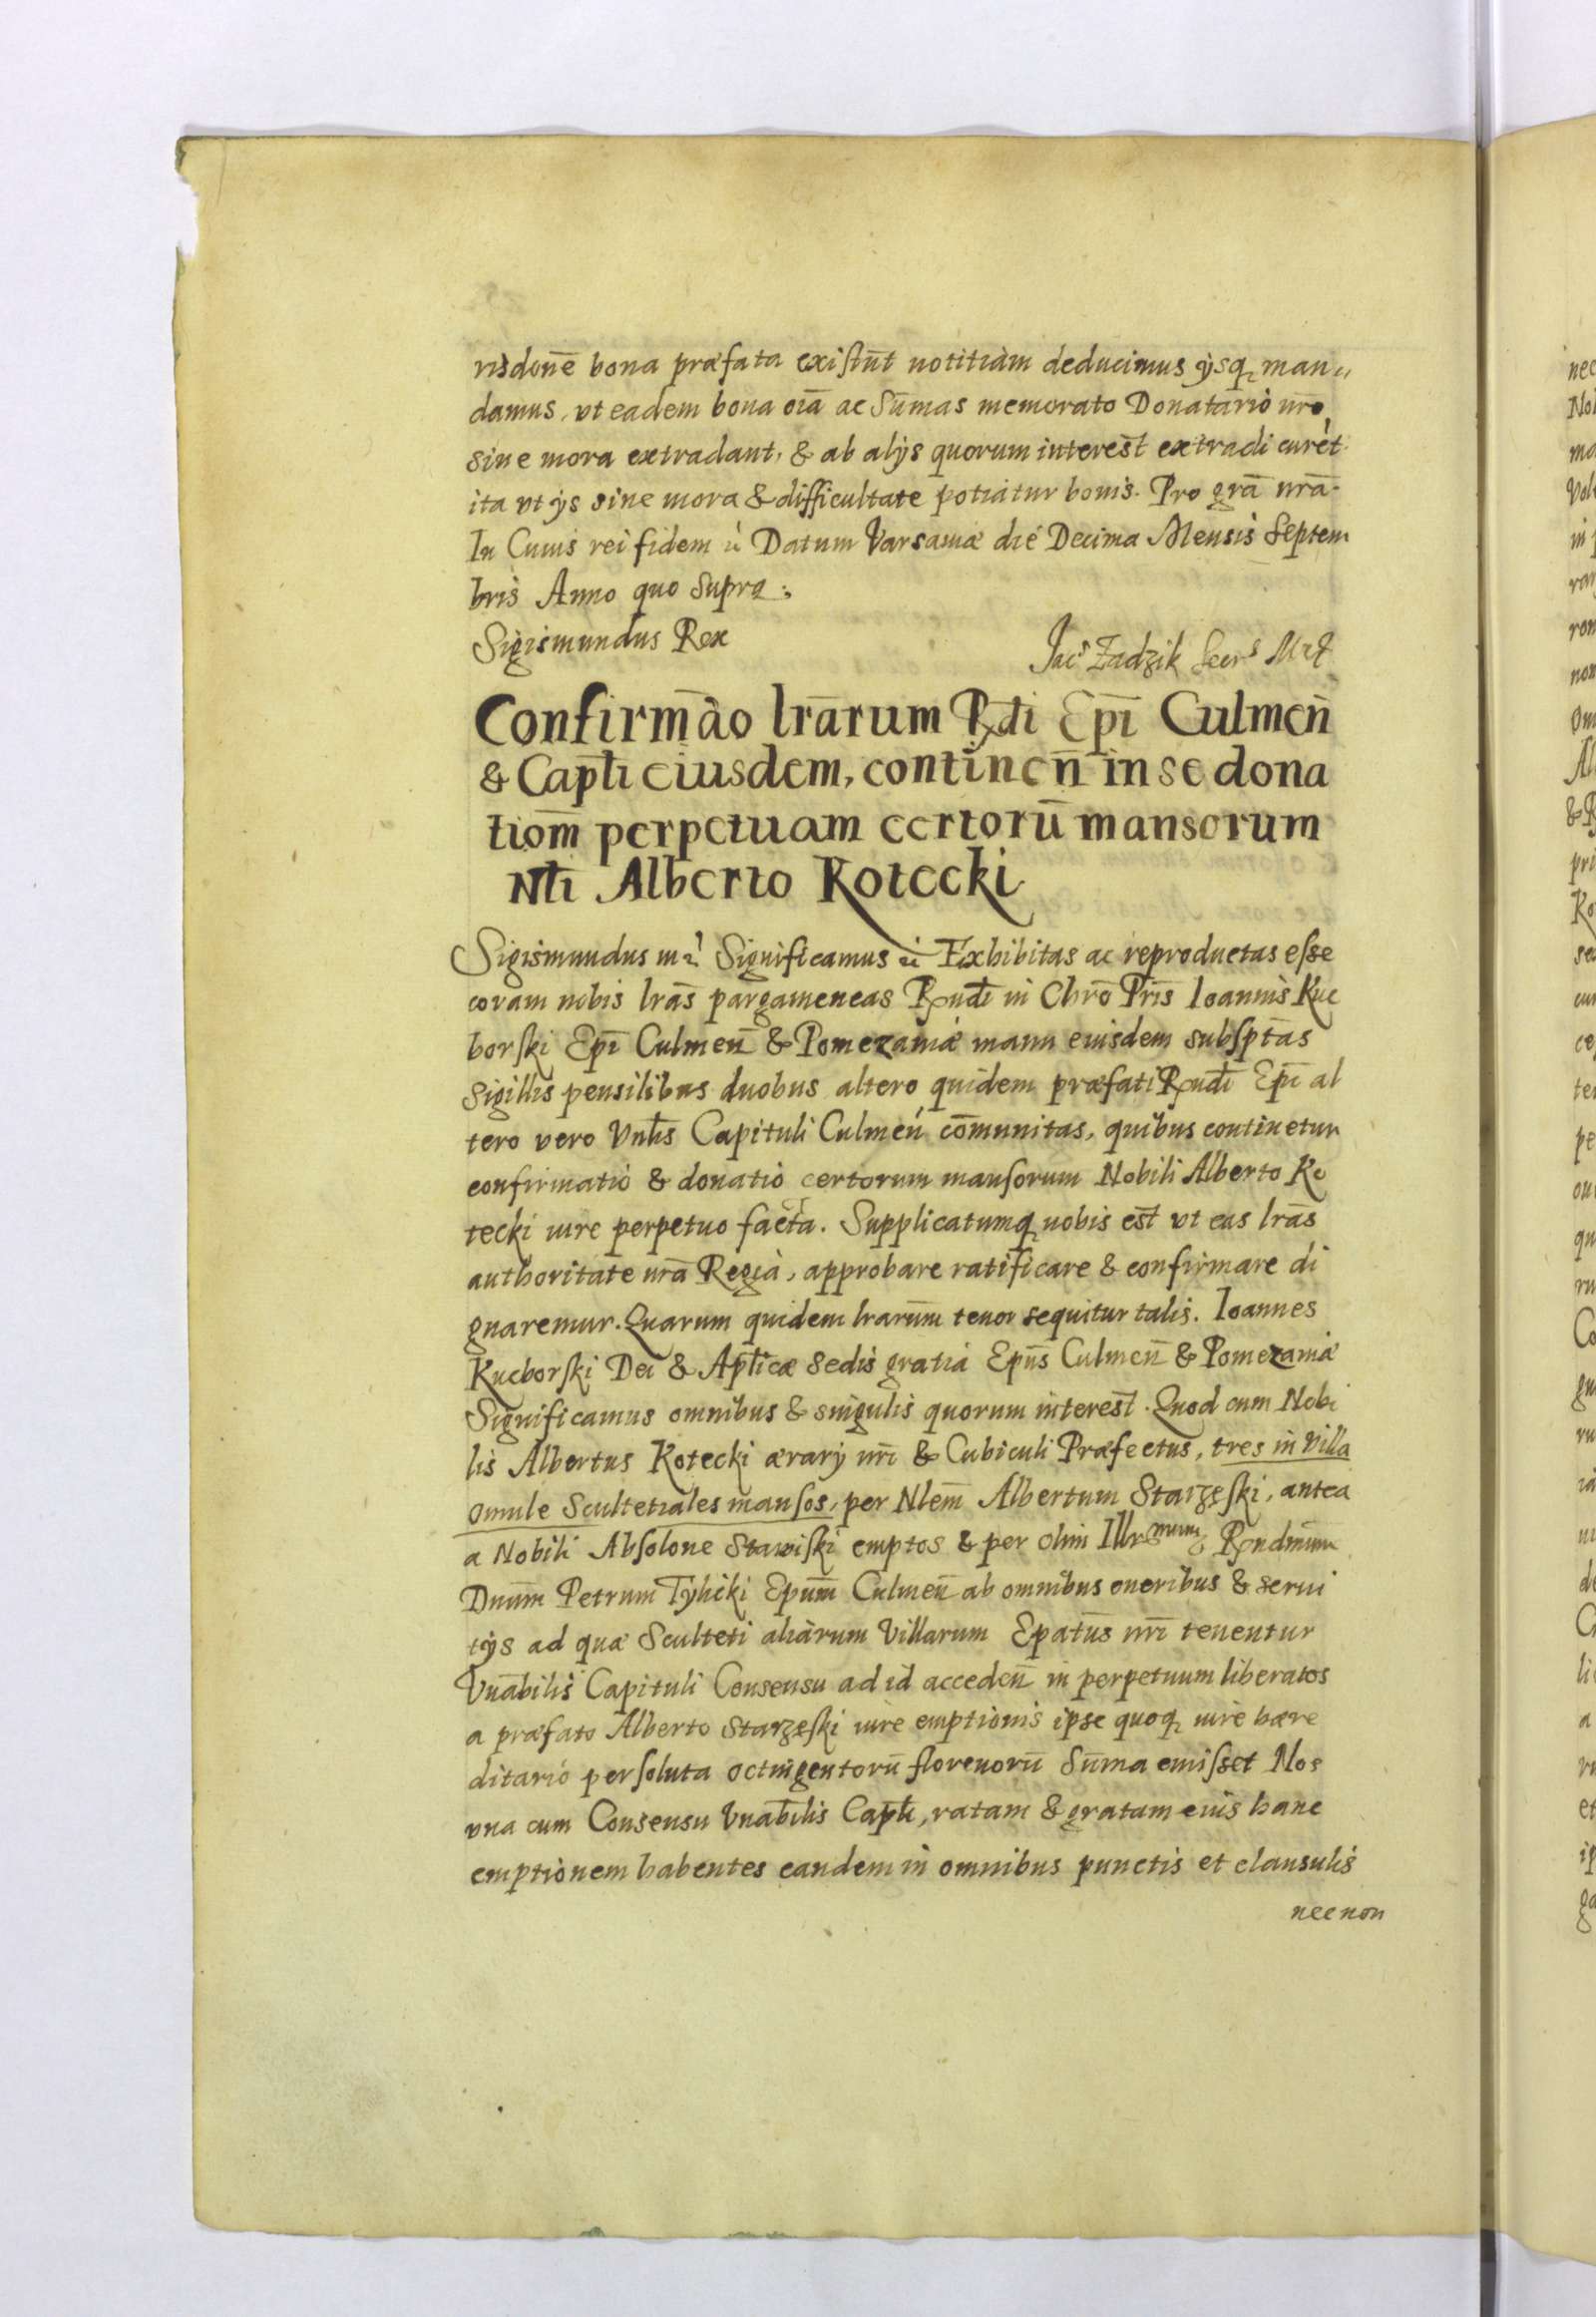 risdone̅ bona præfata existu̅t notitiam deducimus ijsq₃ man„
damus, vt eadem bona oi̅a ac Su̅mas memorato Donatario nr̅o
sine mora extradant, & ab alijs quorum intere̅st extradi cure̅t
ita vt ijs sine mora & difficultate potiatur bonis. Pro gra̅ nra̅.
In Cuius rei fidem Datum Varsauiæ die Decima Mensis Septem
bris Anno quo supra.
Sigismundus Rex
Jac⁹ Zadzik Secr⁹
Confirm̅ao lra̅rum Rdi̅ Epi̅ Culmen̅
& Capl̅i eiusdem, continen̅ in se dona
tiom̅ perpetuam certoru̅ mansorum
Nl̅i Alberto Kotecki
Sigismundus Significamus Exhibitas ac reproductas esse
coram nobis lra̅s pargameneas Rndi̅ in Chro̅ Pri̅s Ioannis Kuc
borski Epi̅ Culmen̅ & Pomezaniæ manu eiusdem subspt̅as
sigillis pensilibus duobus altero quidem præfati Rndi̅ Epi̅ al
tero vero Vnbl̅is Capituli Culmen̅ co̅munitas, quibus continetur
confirmatio & donatio certorum mansorum Nobili Alberto Ko
tecki iure perpetuo facta. Supplicatumq₃ nobis es̅t vt eas lra̅s
authoritate nra̅ Regia, approbare ratificare & confirmare di
gnaremur. Quarum quidem lraru̅m tenor sequitur talis. Ioannes
Kucborski Dei & Apl̅icæ Sedis gratia Epu̅s Culmen̅ & Pomezaniæ
Significamus omnibus & singulis quorum intere̅st. Quod cum Nobi
lis Albertus Kotecki ærarij nri̅ & Cubiculi Præfectus, tres in villa
Omule Scultetiales mansos, per Nle̅m Albertum Starzęski, antea
a Nobili Absolone Stawiski emptos & per olim Illr̅mum Rndmu̅m
Dnu̅m Petrum Tylicki Epu̅m Culmen̅ ab omnibus oneribus & serui
tijs ad quæ Sculteti aliarum Villarum Epatu̅s nri̅ tenentur
Vna̅bilis Capituli Consensu ad id acceden̅ in perpetuum liberatos
a præfato Alberto Starzęski iure emptionis ipse quoq₃ iure hære
ditario persoluta octingentoru̅ florenoru̅ Su̅ma emisset Nos
vna cum Consensu Vnab̅ilis Capl̅i, ratam & gratam eius hanc
emptionem habentes eandem in omnibus punctis et clausulis
necnon